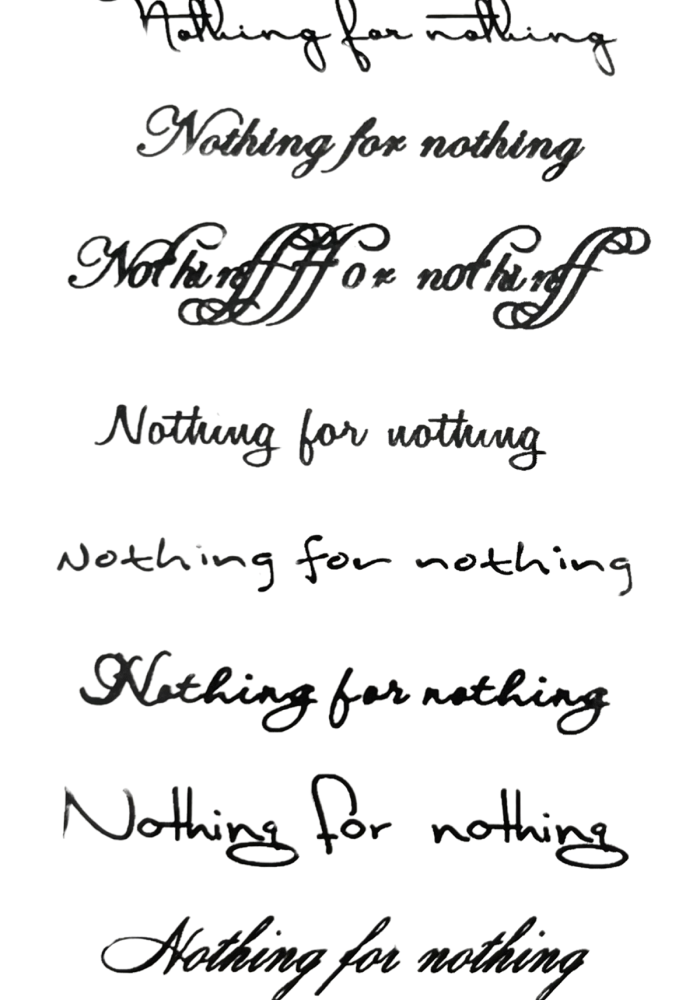 Nothing for nothing
Nothing for nothing
Nothing for nothing
Nothing for nothing
Nothing for nothing
Nothing for nothing
Nothing for nothing
Nothing for nothing